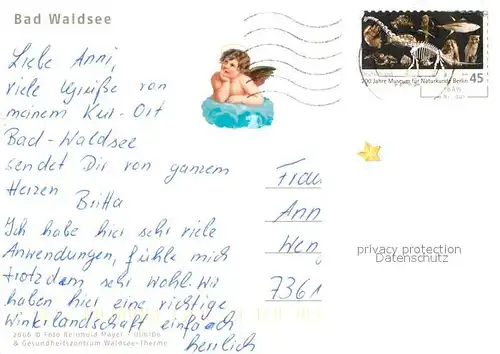 Bad Waldsee
200 Jahre Museum für Naturkunde Berlin
45
Liebe Anni,
viele Grüße von
meinem Kur-Ort
Bad-Waldsee
sendet Dir von ganzem
Herzen
Britta
Ich habe hier sehr viele
Anwendungen, fühle mich
trotzdem sehr wohl. Wir
haben hier eine richtige
Winterlandschaft einfach
herrlich
Frau
Ann
Wen
7361
privacy protection
Datenschutz
2006 © Foto Reinhold Mayer
& Gesundheitszentrum Waldsee-Therme